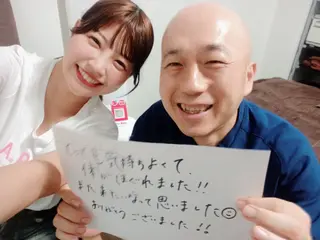 とっても気持ちよくて、
体がほぐれました!!
また来たいなって思いました☺
ありがとうございました!!